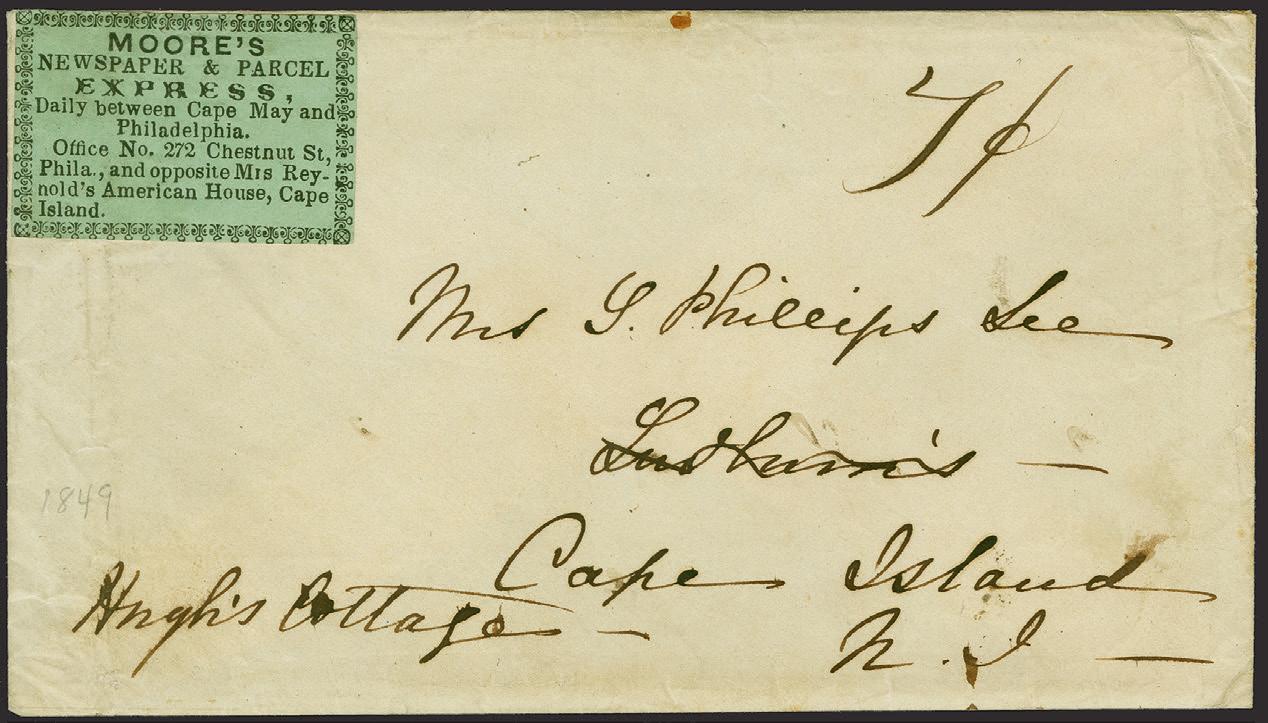 MOORE'S
NEWSPAPER & PARCEL
EXPRESS,
Daily between Cape May and
Philadelphia.
Office No. 272 Chestnut St,
Phila., and opposite Mrs Rey-
nold's American House, Cape
Island.
Mrs S. Phillips Lee
Cape Island
N. J —
Hugh's Cottage —
1849